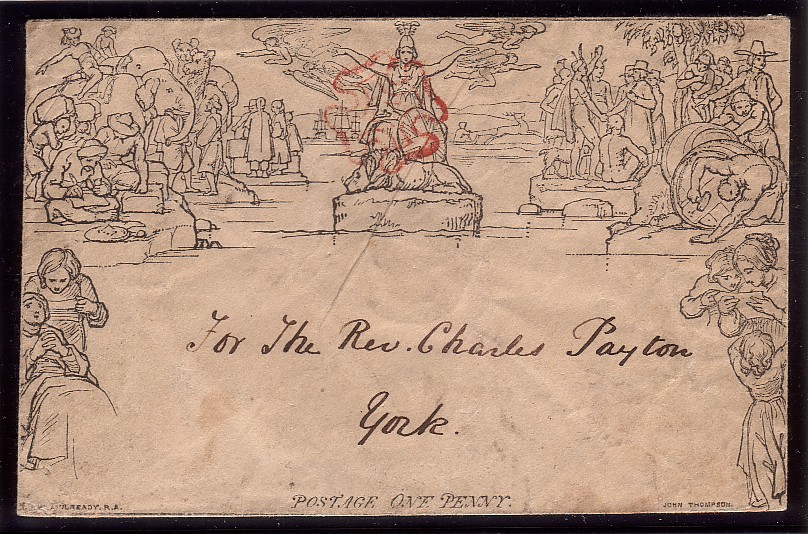 For The Rev. Charles Payton
York.
POSTAGE ONE PENNY.
MULREADY. R.A.
JOHN THOMPSON.